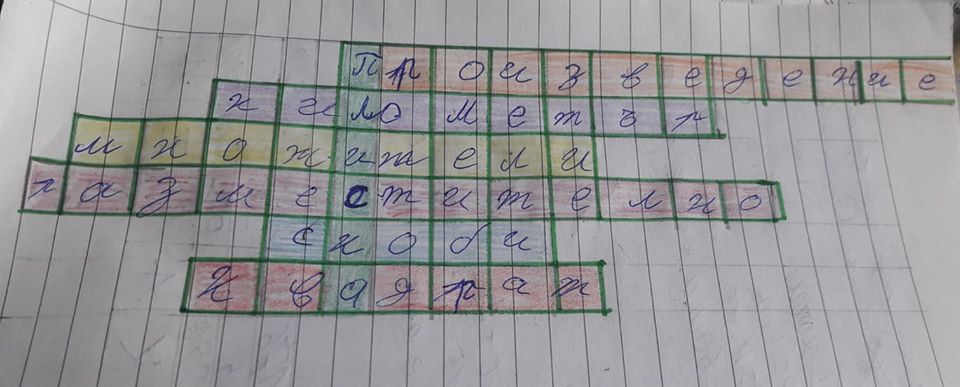 Произведение
километър
множители
разместително
скоби
Квадрат